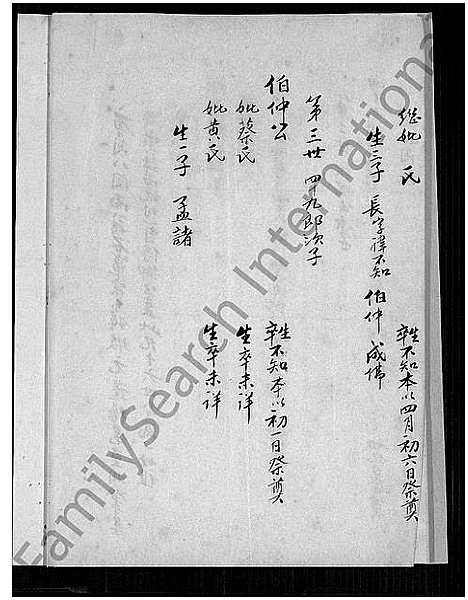 继妣 氏 生卒不知本以四月初六日祭奠
生三子 長字諱不知 伯仲 成佛
第三世 四十九郎次子
伯仲公 生卒不知本以初一日祭奠
妣蔡氏 生卒未詳
妣黄氏 生卒未詳
生一子 孟諸
FamilySearch International